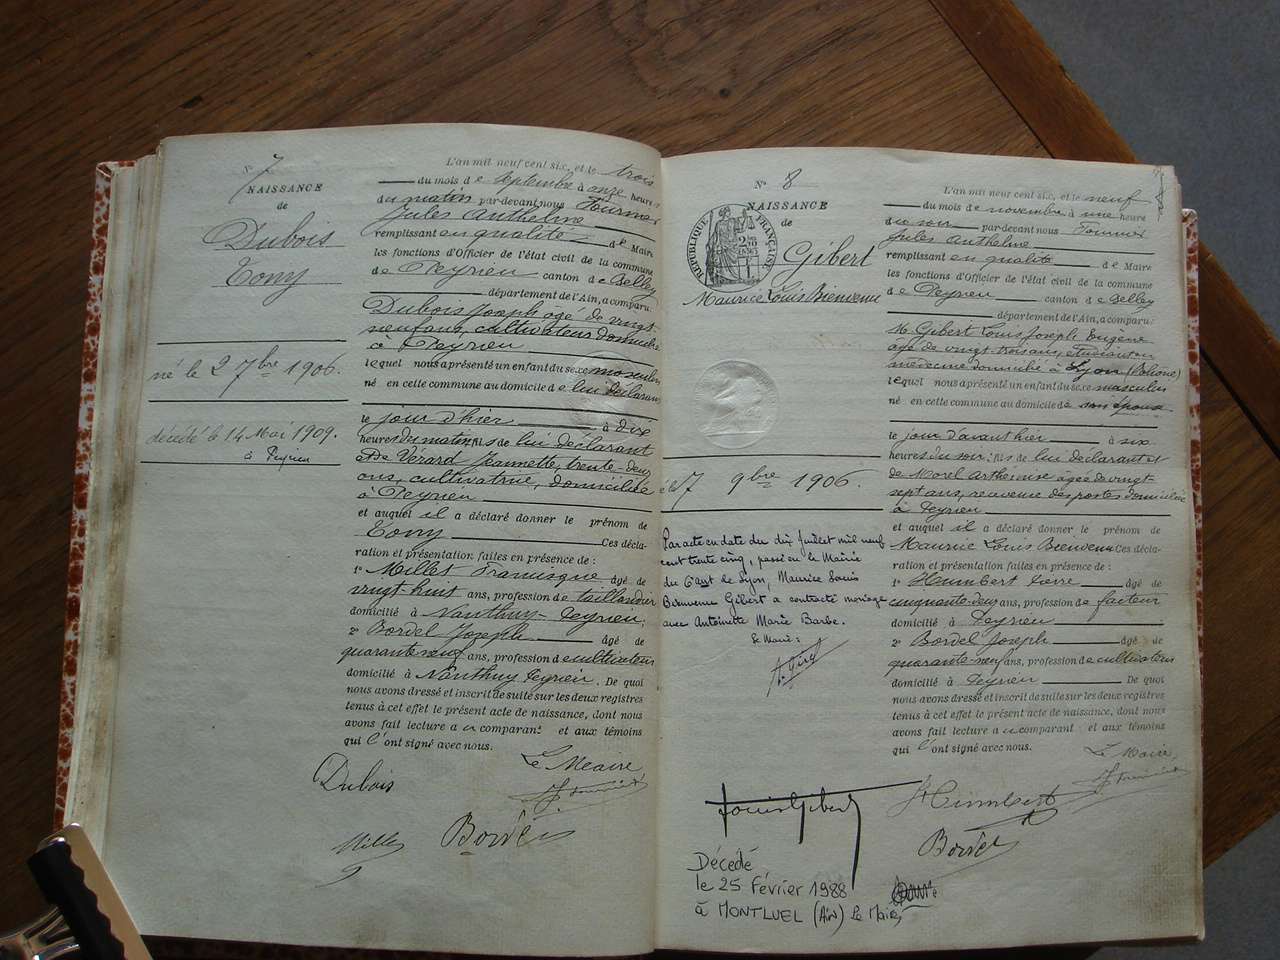 N° 7
NAISSANCE
de
Dubois
Tony
né le 2 7bre 1906.
décédé le 14 Mai 1909.
à Peyrieu
L'an mil neuf cent six, et le trois
du mois de septembre à onze heures
du matin par-devant nous Fournier
Jules Anthelme
remplissant en qualité de Maire
les fonctions d'Officier de l'état civil de la commune
de Peyrieu canton de Belley
département de l'Ain, a comparu:
Dubois Joseph agé de vingt-
neuf ans, cultivateur domicilié
à Peyrieu
lequel nous a présenté un enfant du sexe masculin
né en cette commune au domicile de lui déclarant
le jour d'hier à dix
heures du matin, fils de lui déclarant
et de Vérard Jeannette, trente-deux
ans, cultivatrice, domiciliée
à Peyrieu
et auquel il a déclaré donner le prénom de
Tony Ces décla-
ration et présentation faites en présence de :
1° Millet Francisque âgé de
vingt huit ans, profession de taillandier
domicilié à Nanthuy-Peyrieu;
2° Bordel Joseph âgé de
quarante-neuf ans, profession de cultivateur
domicilié à Nanthuy Peyrieu. De quoi
nous avons dressé et inscrit de suite sur les deux registres
tenus à cet effet le présent acte de naissance, dont nous
avons fait lecture au comparant et aux témoins
qui l'ont signé avec nous.
Le Maire
Dubois
J. Fournier
Millet
Bordel
N° 8
NAISSANCE
de
RÉPUBLIQUE FRANÇAISE
Gibert
Maurice Louis Bienvenu
né le 7 9bre 1906.
Par acte en date du dix Juillet mil neuf
cent trente cinq, passé en la Mairie
du 6e arrt de Lyon, Maurice Louis
Bienvenu Gibert a contracté mariage
avec Antoinette Marie Barbe.
Le Maire :
L'an mil neuf cent six, et le neuf
du mois de novembre à une heure
du soir par-devant nous Fournier
Jules Anthelme
remplissant en qualité de Maire
les fonctions d'Officier de l'état civil de la commune
de Peyrieu canton de Belley
département de l'Ain, a comparu:
M. Gibert Louis Joseph Eugène
agé de vingt trois ans, étudiant en
médecine domicilié à Lyon (Rhône)
lequel nous a présenté un enfant du sexe masculin
né en cette commune au domicile de son épouse
le jour d'avant hier à six
heures du soir; fils de lui déclarant et
de Morel Arthémise agée de vingt-
sept ans, receveuse des postes domiciliée
à Peyrieu
et auquel il a déclaré donner le prénom de
Maurice Louis Bienvenu Ces décla-
ration et présentation faites en présence de :
1° Humbert âgé de
cinquante-deux ans, profession de facteur
domicilié à Peyrieu
2° Bordel Joseph âgé de
quarante-neuf ans, profession de cultivateur
domicilié à Peyrieu De quoi
nous avons dressé et inscrit de suite sur les deux registres
tenus à cet effet le présent acte de naissance, dont nous
avons fait lecture au comparant et aux témoins
qui l'ont signé avec nous.
Le Maire,
J. Fournier
Louis Gibert
Humbert
Bordel
Décédé
le 25 Février 1988
à MONTLUEL (Ain) Le Maire